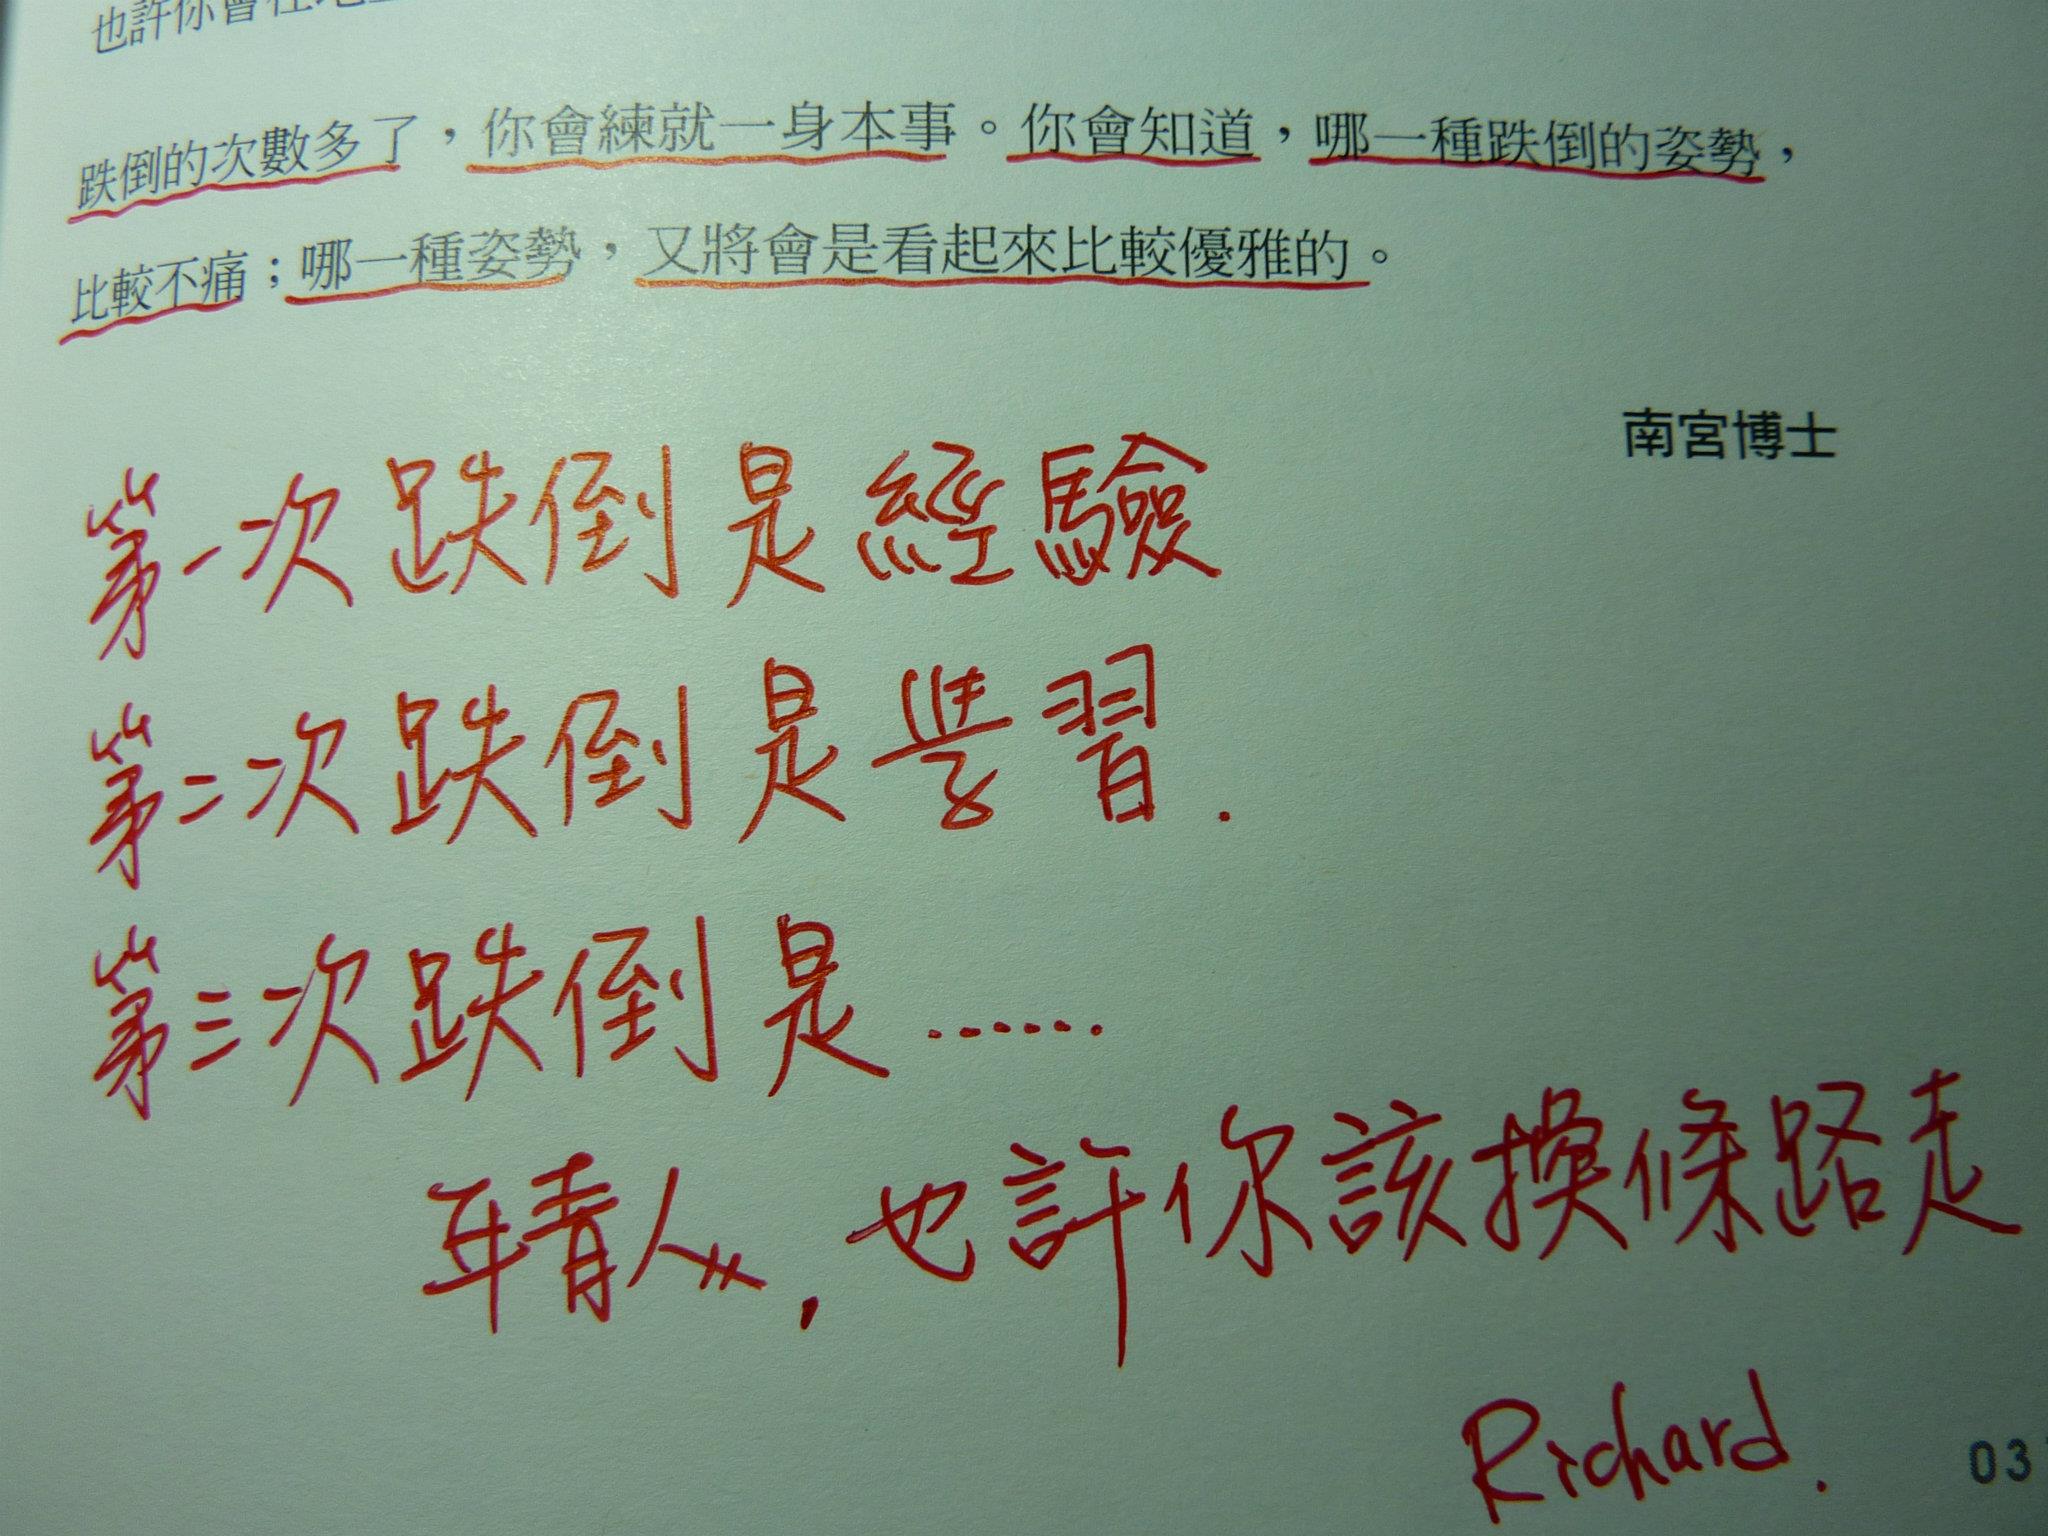 也許你會在地
跌倒的次數多了，你會練就一身本事。你會知道，哪一種跌倒的姿勢，
比較不痛；哪一種姿勢，又將會是看起來比較優雅的。
南宮博士
第一次跌倒是經驗
第二次跌倒是學習.
第三次跌倒是......
年青人，也許你該換條路走
Richard.
03